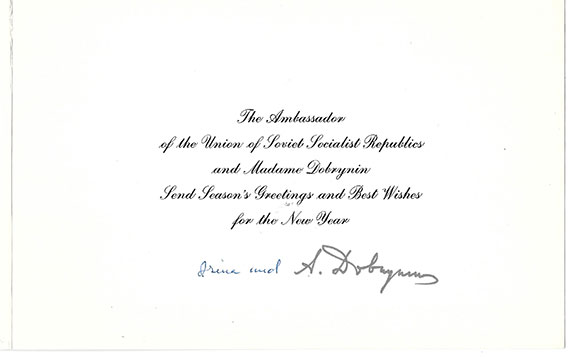 The Ambassador
of the Union of Soviet Socialist Republics
and Madame Dobrynin
Send Season's Greetings and Best Wishes
for the New Year
Irina and A. Dobrynin